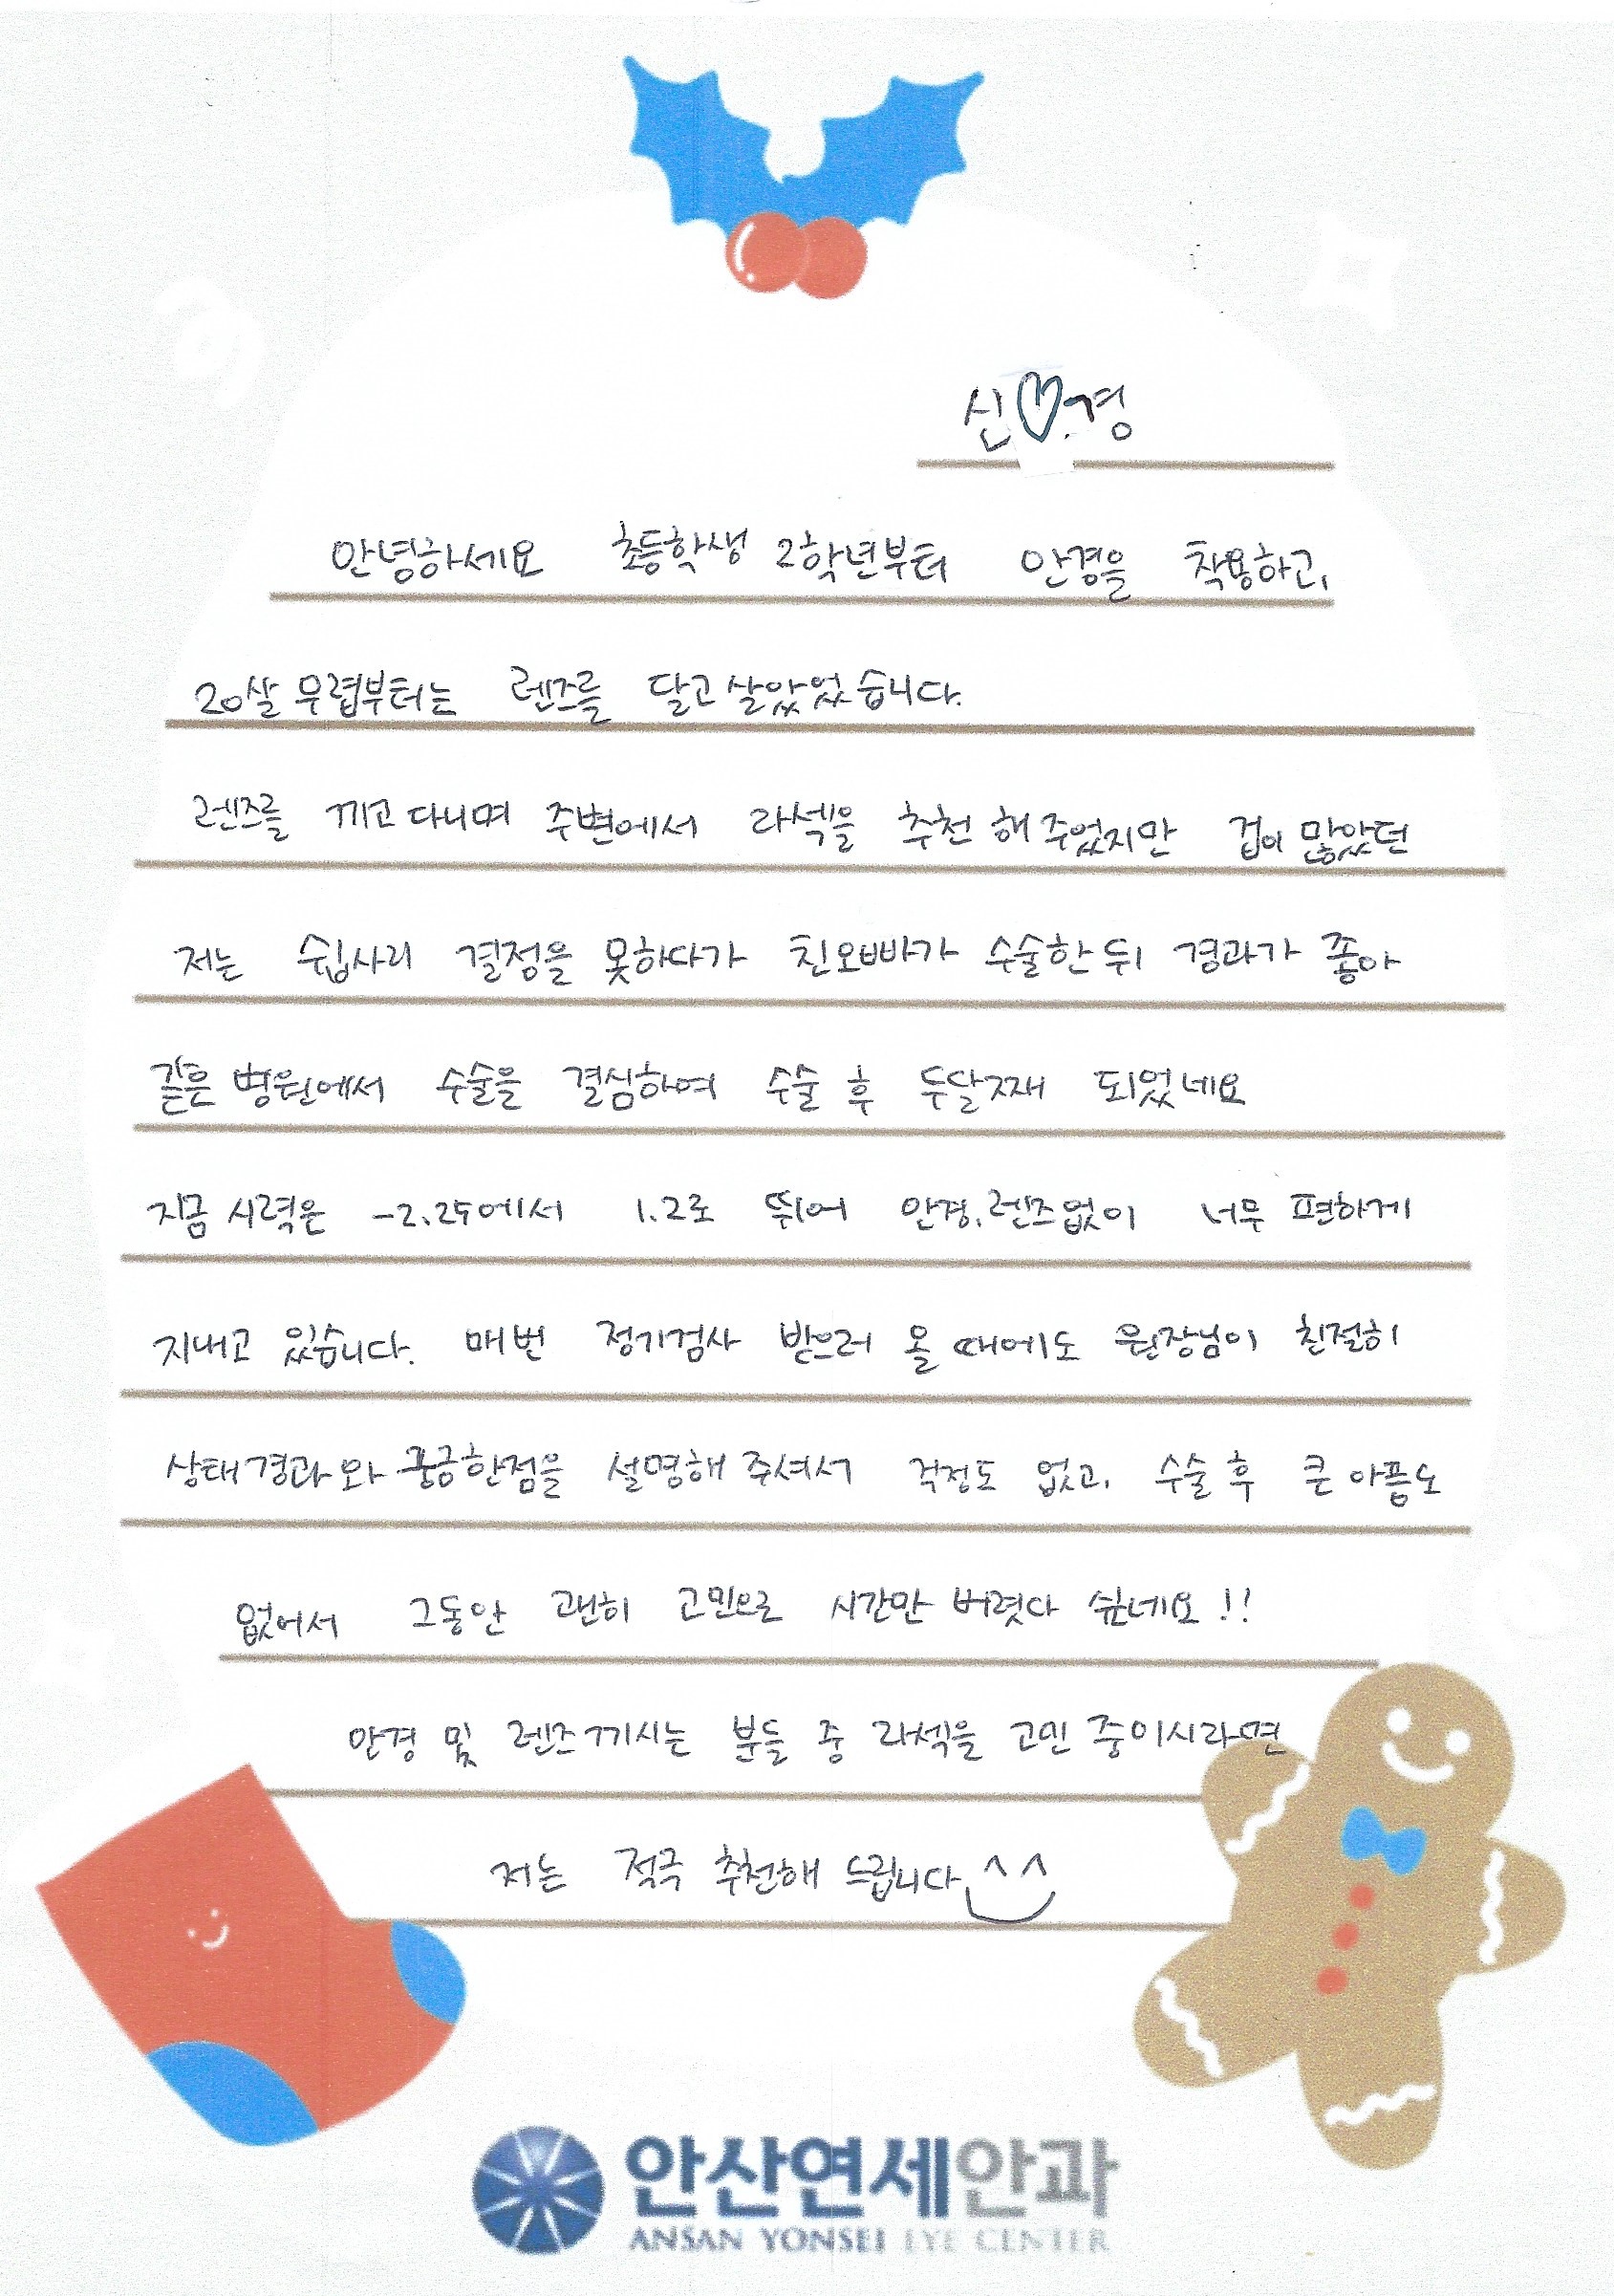 신♡경
안녕하세요 초등학생 2학년부터 안경을 착용하고,
20살 무렵부터는 렌즈를 달고 살았었습니다.
렌즈를 끼고 다니며 주변에서 라섹을 추천 해 주었지만 겁이 많았던
저는 쉽사리 결정을 못하다가 친오빠가 수술한 뒤 경과가 좋아
같은 병원에서 수술을 결심하여 수술 후 두달째 되었네요
지금 시력은 -2.25에서 1.2로 뛰어 안경, 렌즈없이 너무 편하게
지내고 있습니다. 매번 정기검사 받으러 올 때에도 원장님이 친절히
상태 경과와 궁금한점을 설명해 주셔서 걱정도 없고, 수술 후 큰 아픔도
없어서 그동안 괜히 고민으로 시간만 버렸다 싶네요!!
안경 및 렌즈 끼시는 분들 중 라섹을 고민 중이시라면
저는 적극 추천해 드립니다 ^^
안산연세안과
ANSAN YONSEI EYE CENTER